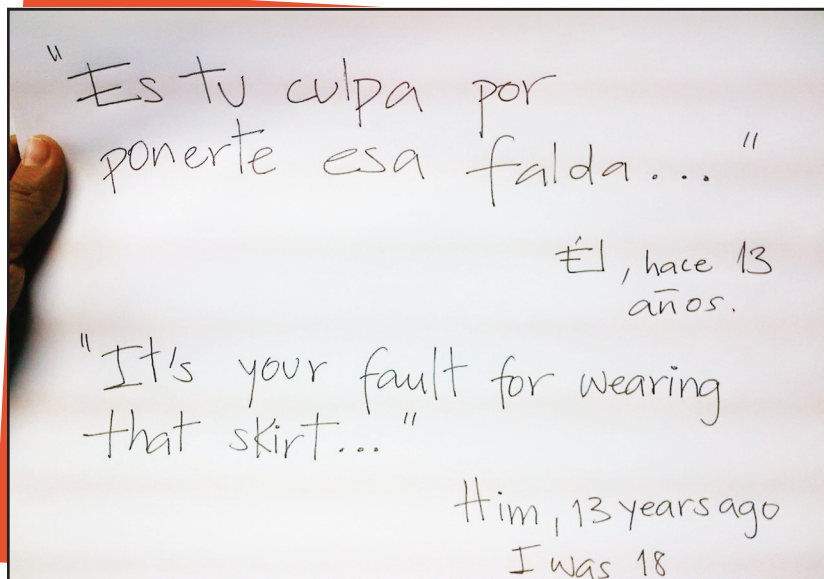 "Es tu culpa por
ponerte esa falda..."
Él, hace 13
años.
"It's your fault for wearing
that skirt..."
Him, 13 years ago
I was 18